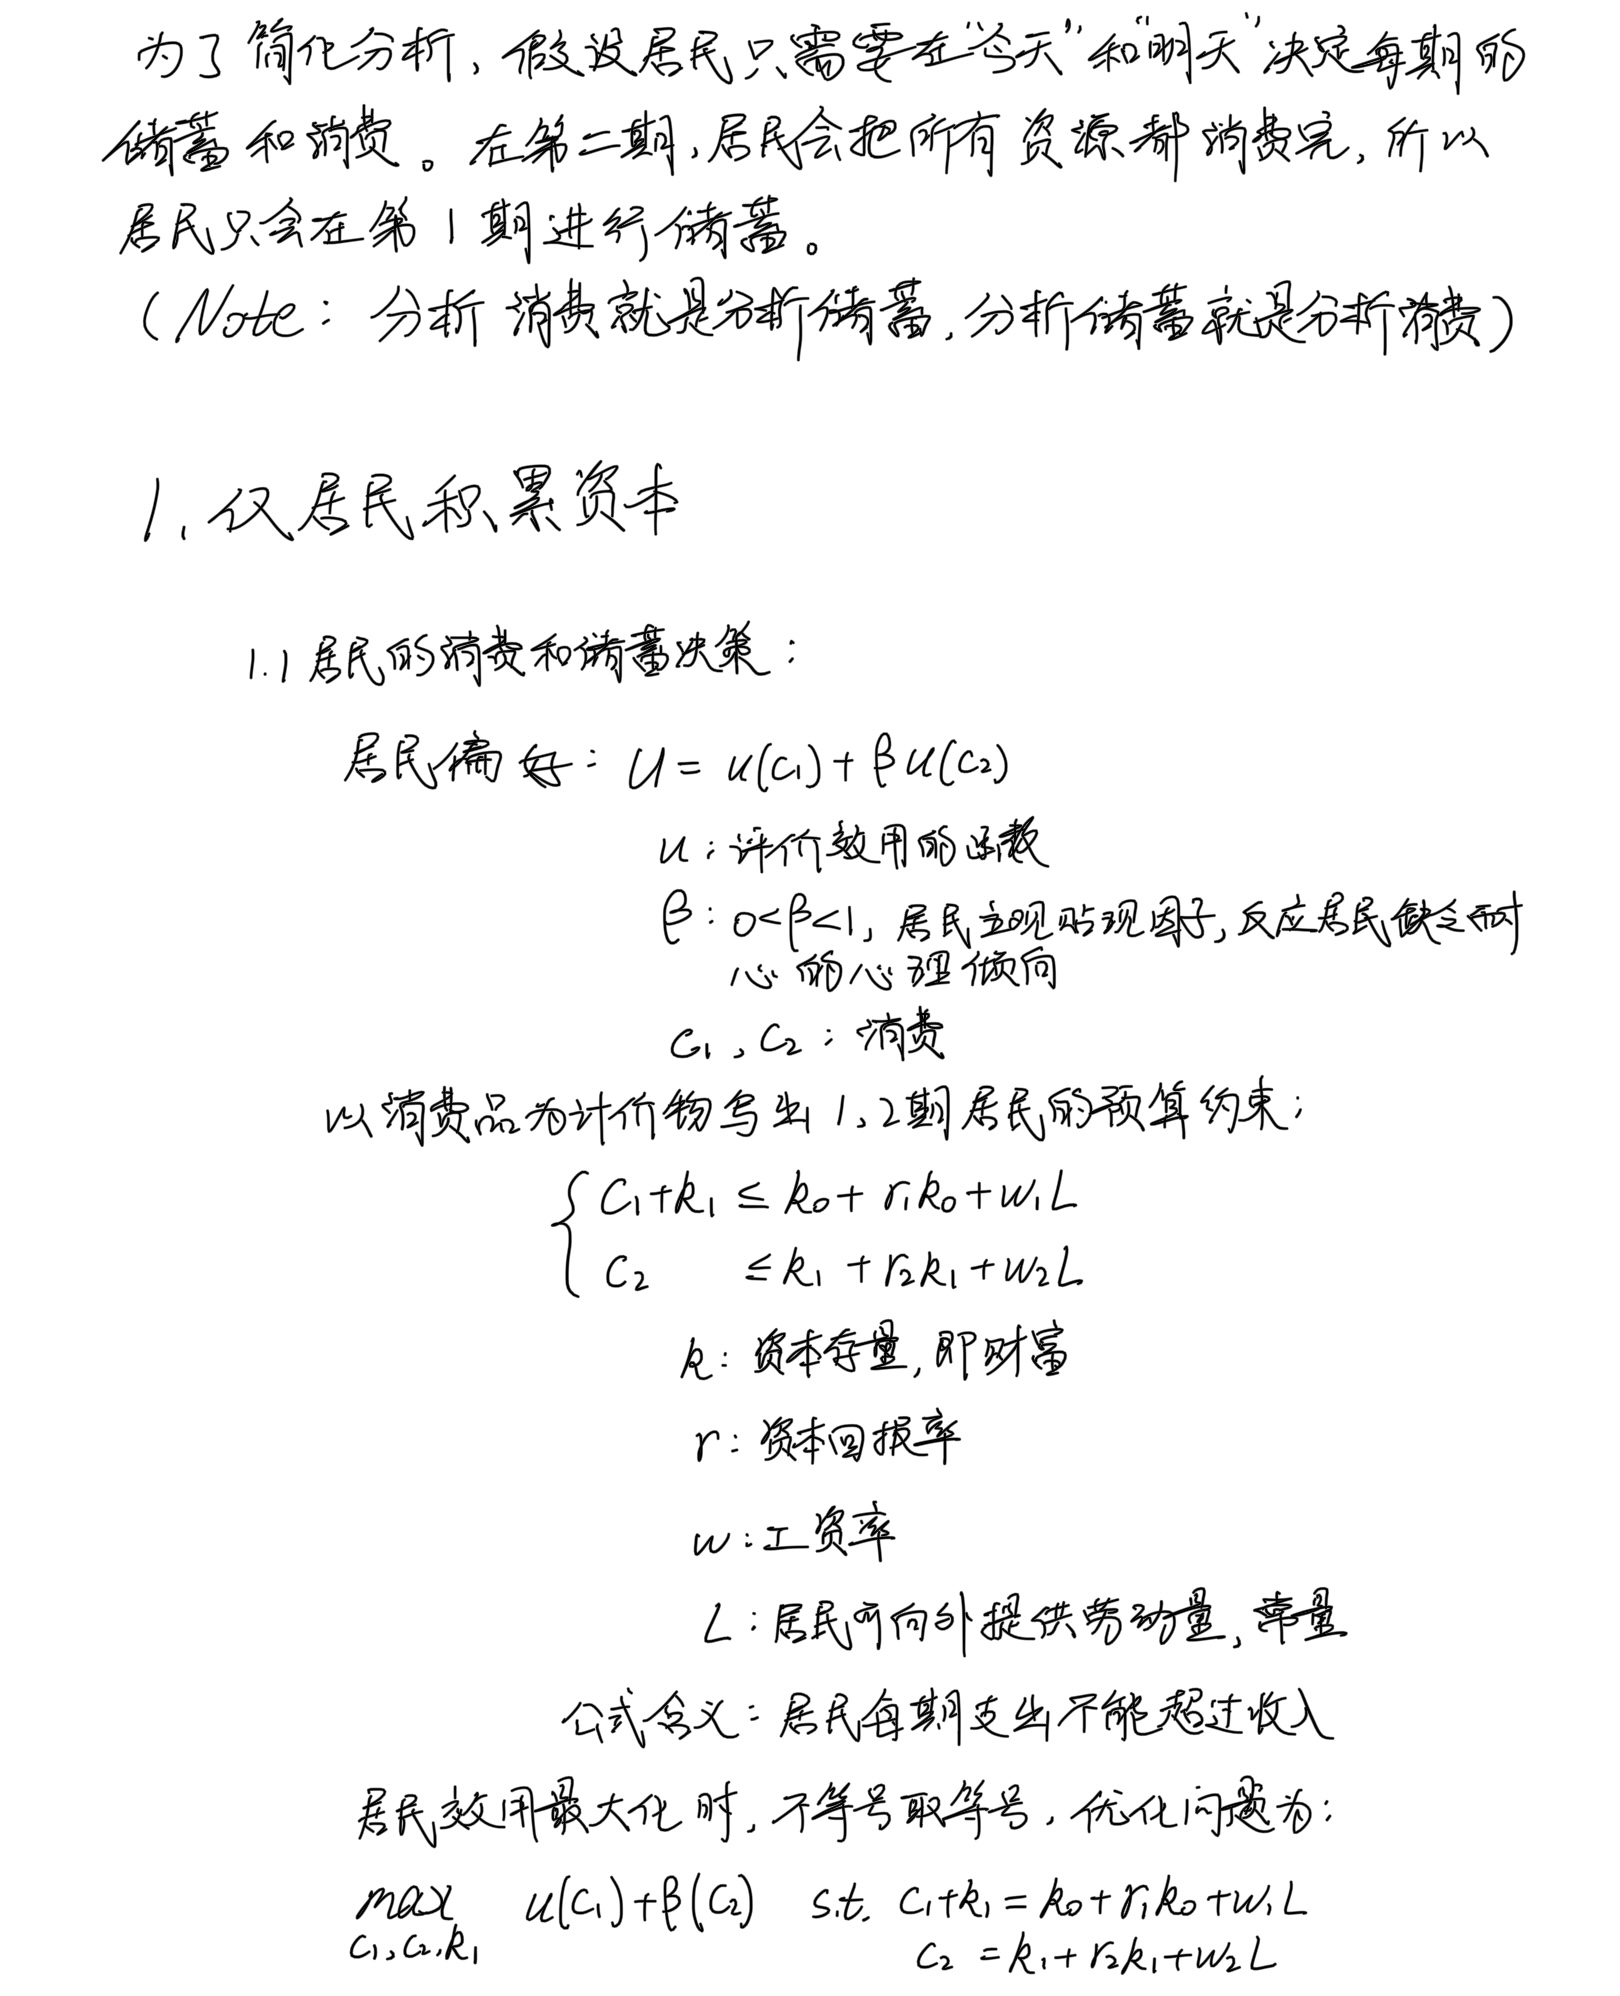 为了简化分析，假设居民只需要在“今天”和“明天”决定每期的
储蓄和消费。在第二期，居民会把所有资源都消费完，所以
居民只会在第1期进行储蓄。
（Note：分析消费就是分析储蓄，分析储蓄就是分析消费）
1. 仅居民积累资本
1.1 居民的消费和储蓄决策：
居民偏好：U = u(c₁) + βu(c₂)
u：评价效用的函数
β：0<β<1，居民主观贴现因子，反应居民缺乏耐
心的心理倾向
c₁，c₂：消费
以消费品为计价物写出1,2期居民的预算约束：
{ c₁+k₁ ≤ k₀+r₁k₀+w₁L
c₂ ≤ k₁+r₂k₁+w₂L
k：资本存量，即财富
r：资本回报率
w：工资率
L：居民可向外提供劳动量，常量
公式含义：居民每期支出不能超过收入
居民效用最大化时，不等号取等号，优化问题为：
max u(c₁)+β(c₂) s.t. c₁+k₁ = k₀+r₁k₀+w₁L
c₁,c₂,k₁ c₂ = k₁+r₂k₁+w₂L